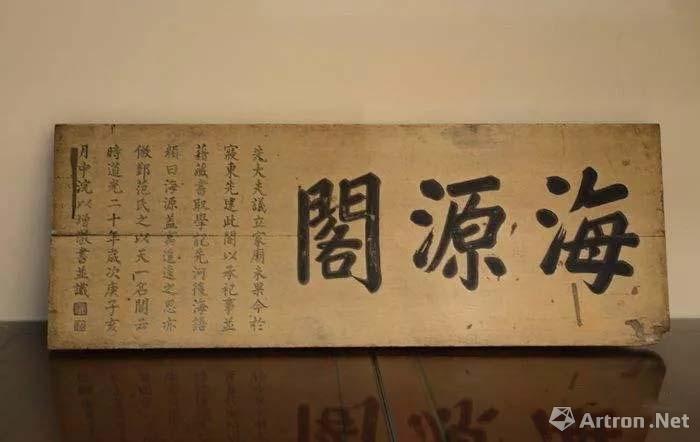 海源閣
先大夫議立家廟未果今於
寢東先建此閣以承祀事並
藉藏書取學記先河後海語
顏曰海源蓋寓追遠之思亦
倣鄞范氏之以天一名閣云
時道光二十年歲次庚子亥
月中浣以增敬書並識
Artron.Net